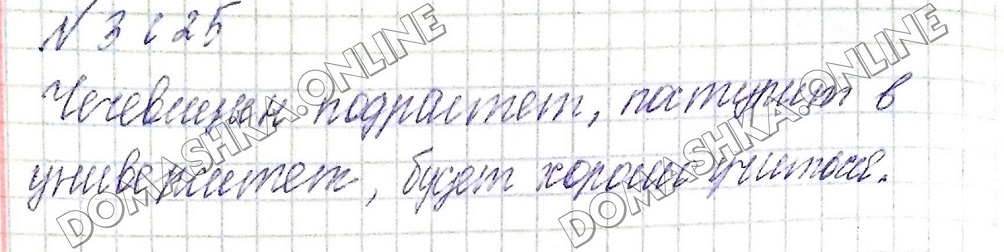 N 3 с 25
Чечевицын подрастет, поступит в
университет, будет хорошо учиться.
DOMASHKA.ONLINE
DOMASHKA.ONLINE